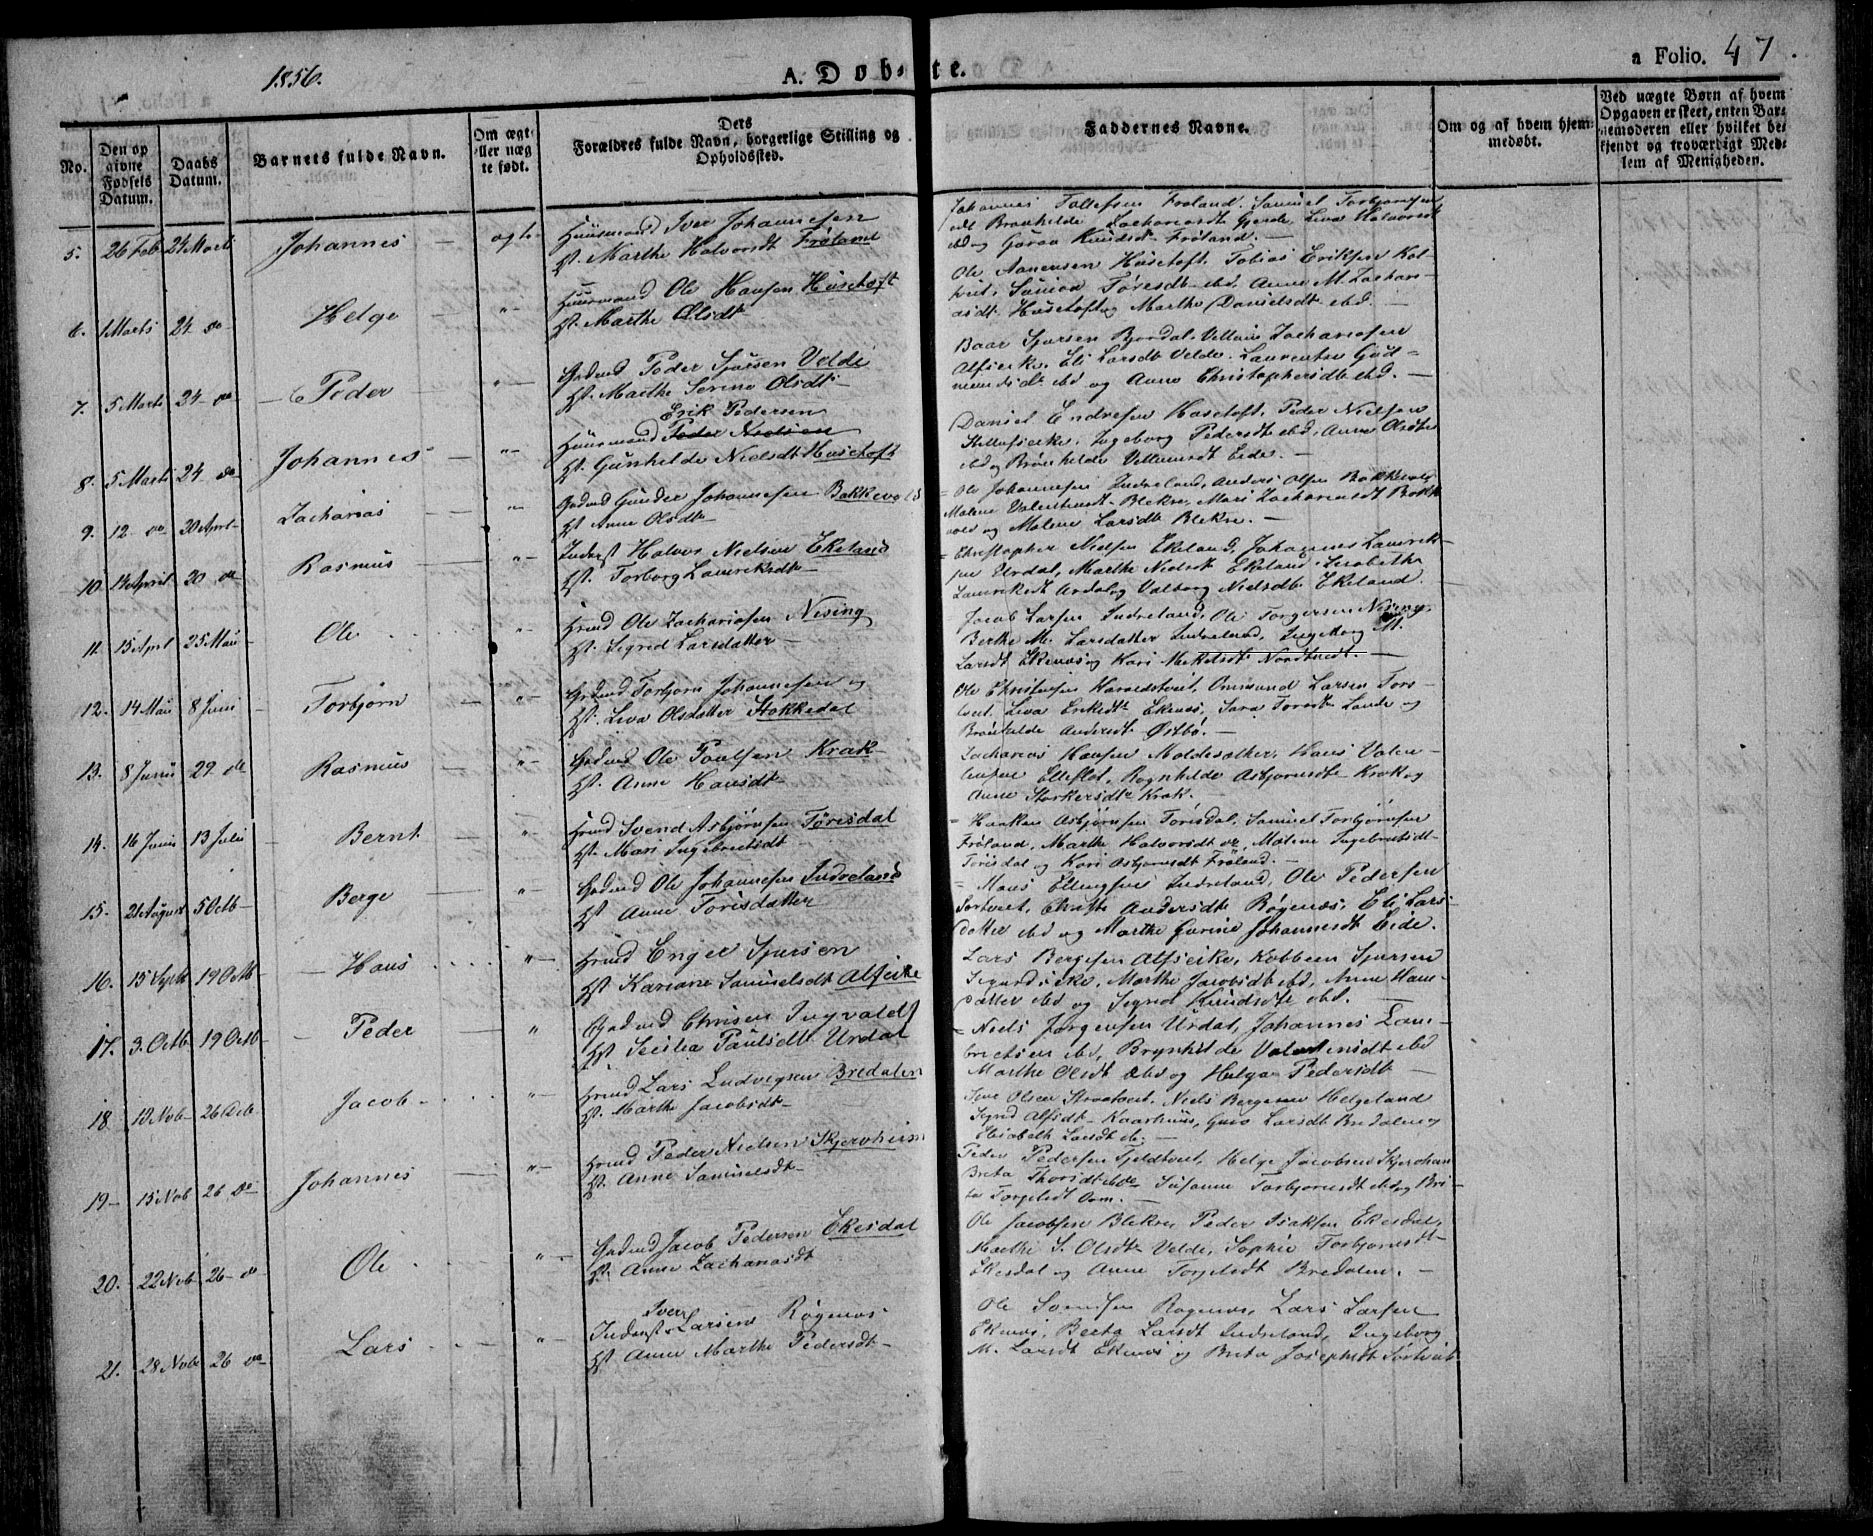 1856.
A. Døbte.
a Folio. 47.
No.
Den opgivne Fødsels Datum.
Daabs Datum.
Barnets fulde Navn.
Om ægte eller uægte født.
Dets Forældres fulde Navn, borgerlige Stilling og Opholdssted.
Faddernes Navne.
Om og af hvem hjemmedøbt.
Ved uægte Børn af hvem Opgaven er skeet, enten Barnemoderen eller hvilket bekjendt og troværdigt Medlem af Menigheden.
5. 26 Feb 24 Marts Johannes ægte Huusmand Iver Johannesen
Hst. Marthe Halvorsdt Frøland
Johannes Tollefsen Frøland, Samuel Torbjørnsen
Brønhilde Zachariasdt Gjerde, Liva Halvorsdt
ibd og Guroe Knudsdt Frøland.
6. 1 Marts 24 do Helge " Huusmand Ole Hansen Husetoft
Hst. Marthe Olsdt
Ole Aanensen Husetoft, Tobias Eriksen
Toresdt ibd, Anne M. Zachari-
asdt Husetoft og Marthe Danielsdt ibd.
7. 5 Marts 24 do Peder " Gadmd Peder Sjursen Velde
Hst. Marthe Serine Olsdt
Baar Sjursen Bjordal, Villum Zachariasen
Alfseike, Eli Larsdt Velde, Laurentse Gud-
mundsdt ibd og Anne Christophersdt ibd.
8. 5 Marts 24 do Johannes " Huusmand Peder Nielsen
Erik Pedersen
Hst. Gunhilde Nielsdt Husetoft
Daniel Endresen Husetoft, Peder Nielsen
Ingeborg Pedersdt ibd, Anne Olsdt
ibd og Brønhilde Villumsdt Eide.
9. 12 do 20 April Zacharias " Gadmd Gunder Johannesen Bakkevold
Hst Anne Olsdt
Ole Johannesen Indreland, Anders Olsen Bakkevold
Malene Valentinsdt Blekne, Mari Zachariasdt Bakke
vold og Malene Larsdt Blekne.
10. 14 April 20 do Rasmus " Inderst Halvor Nielsen Ekeland
Hst. Torborg Lauriksdt
Christopher Nielsen Ekeland, Johannes Laurik-
sen Urdal, Marthe Nielsdt Ekeland, Lisabetha
Lauriksdt Urdal og Valborg Nielsdt Ekeland.
11. 15 April 25 Mai Ole " Hrmd Ole Zachariasen Nesing
Hst. Sigrid Larsdatter
Jacob Larsen Indreland, Ole Torgersen Nesing,
Berthe M. Larsdatter Indreland, Ingeborg M.
Larsdt Ekenes og Kari Mikkelsdt Nordtvedt.
12. 14 Mai 8 Juni Torbjørn " Gadmd Torbjørn Johannesen og
Hst. Liva Olsdatter Stokkedal
Ole Christensen Haraldstveit, Ommund Larsen Tors-
tveit, Liva Eriksdt Ekenes, Sara Toresdt Lande og
Brønhilde Andersdt Østbø.
13. 8 Junii 29 do Rasmus " Gadmd Ole Poulsen Krak
Hst. Anne Hansdt
Zacharias Hansen Moldesæther, Hans Valen-
tinsen Elleflot, Ragnhilde Asbjørnsdt Krak og
Anne Storkersdt Krak.
14. 16 Juni 13 Juli Bernt " Hrmd Svend Asbjørnsen Tøresdal
Hst. Mari Ingebretsdt
Haaken Asbjørnsen Tørisdal, Samuel Torbjørnsen
Frøland, Marthe Halvorsdt do, Malene Ingebretsdt
Torisdal og Kari Asbjørnsdt Frøland.
15. 21 August 5 Octb Berge " Gadmd Ole Johannesen Indreland
Hst Anne Torisdatter
Mons Ellingsen Indreland, Ole Pedersen
Sortveit, Christi Andersdt Røgenes, Eli Lars
datter ibd og Marthe Gurine Johannesdt Eide.
16. 15 Septb 19 Octb Hans " Hrmd Engel Sjursen
Hst Kariane Samuelsdt Alfseike
Lars Bergesen Alfseike, Kobben Sjursen
Sigurdseike, Marthe Jacobsdt ibd, Anne Hans
datter ibd og Sigrid Knudsdt ibd.
17. 3. Octb 19 Octb Peder " Gadmd Chrisen Ingvalds
Hst Secilia Paulsdt Urdal
Niels Jørgensen Urdal, Johannes Lau-
ritsen ibd, Brynhilde Valentinsdt ibd
Marthe Olsdt ibd og Helga Pedersdt
18. 10 Nob 26 Deb Jacob " Hrmd Lars Ludvigsen Bredalen
Hst. Marthe Jacobsdt
Olsen Niels Bergesen Helgeland
Sigrid Alfsdt Kaarhuus, Guro Larsdt Bredalen og
Elisabeth Larsdt do
19 15 Nob 26 do Johannes " Hrmd Peder Nielsen Skjervheim
Hst. Anne Samuelsdt
Peder Pedersen Helge Jacobsen Skjerheim
Breta Thorisdt ibd Susanne Torbjørnsdt ibd og Bri-
ta Torgilsdt
20. 22 Nob. 26 do Ole " Gadmd Jacob Pedersen Ekesdal
Hst. Anne Zachariasdt
Ole Jacobsen Blekne, Peder Isaksen Ekesdal,
Marthe S. Olsdt Velde, Sophie Torbjørnsdt
Ekesdal og Anne Torgilsdt Bredalen.
21. 28 Nobr 26 do Lars " Inderst Iver Larsen Røgenes
Hst Anne Marthe Pedersdt
Ole Svendsen Røgenes, Lars Larsen
Ekenes, Berta Larsdt Indreland, Ingeborg
M. Larsdt Ekenes og Breta Josephsdt Sørtveit